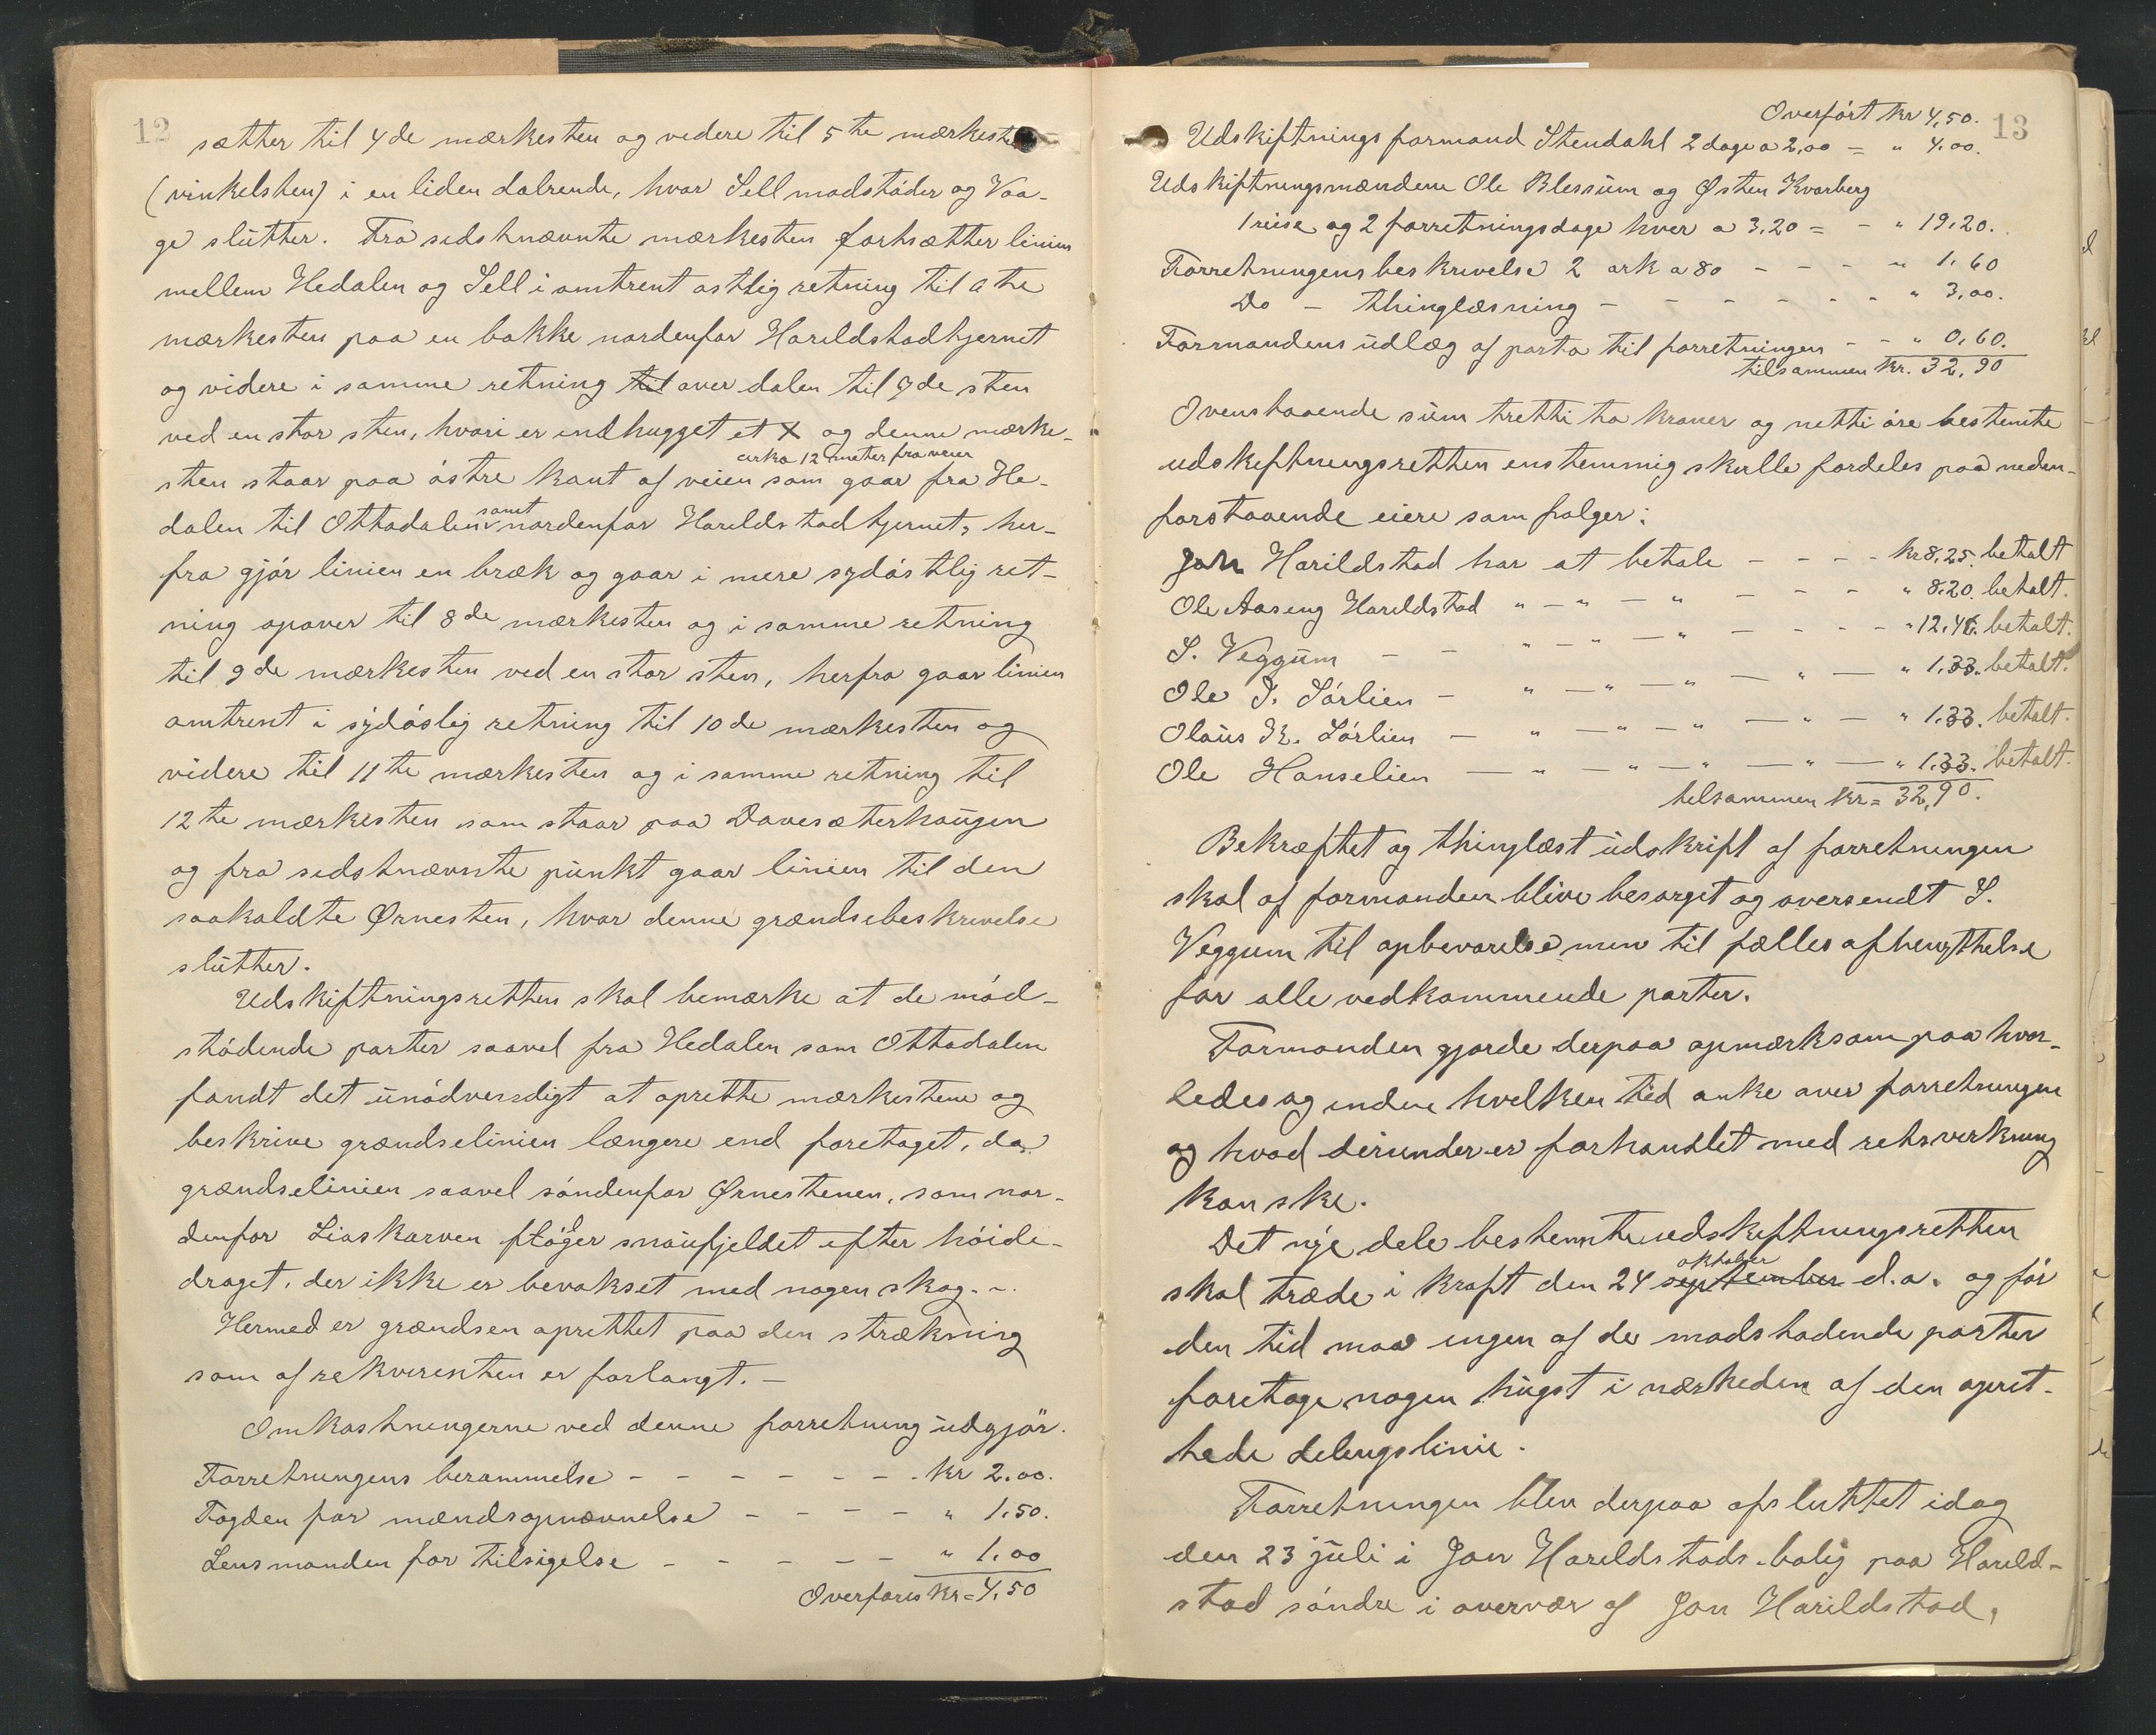 12
sætter til 4de mærkesten og videre til 5te mærkesten
(vinkelsten) i en liden dalrende, hvor Sell modstöder og Vaa-
ge slutter. Fra sidstnævnte mærkesten fortsætter linien
mellem Hedalen og Sell i omtrent østlig retning til 6te
mærkesten paa en bakke nordenfor Harildstadtjernet
og videre i samme retning til over dalen til 7de sten
ved en stor sten, hvori er indhugget et X og denne mærke-
cirka 12 meter fra veien
sten staar paa östre kant af veien som gaar fra He-
dalen til Ottadalen samt nordenfor Harildstadtjernet, her-
fra gjör linien en bræk og gaar i mere sydöstlig ret-
ning opover til 8de mærkesten og i samme retning
til 9de mærkesten ved en stor sten, herfra gaar linien
omtrent i sydöslig retning til 10de mærkesten og
videre til 11te mærkesten og i samme retning til
12te mærkesten som staar paa Davesæterhaugen
og fra sidstnævnte punkt gaar linien til den
saakaldte Ørnesten, hvor denne grændsebeskrivelse
slutter.
Udskiftningsretten skal bemærke at de mod-
stödende parter saavel fra Hedalen som Ottadalen
fandt det unödvendigt at oprette mærkestene og
beskrive grændselinien længere end foretaget, da
grændselinien saavel söndenfor Ørnestenen, som nor-
denfor Liaskarven fölger snaufjeldet efter höide-
draget, der ikke er bevokset med nogen skog. -
Hermed er grændsen oprettet paa den strækning
som af rekvirenten er forlangt. -
Omkostningerne ved denne forretning udgjör.
Forretningens berammelse - - - - - - kr 2.00.
Fogden for mændsopnævnelse - - - - " 1.50.
Lensmanden for tilsigelse - - - - - " 1.00
Overføres kr = 4,50
13
Overført kr 4,50.
Udskiftningsformand Stendahl 2 dage a 2,00 = " 4.00.
Udskiftningsmændene Ole Blessum og Østen Kvarberg
1 reise og 2 forretningsdage hver a 3,20 = - " 19,20.
Forretningens beskrivelse 2 ark a 80 - - - " 1.60
Do - thinglæsning - - - - - - " 3,00.
Formandens udlæg af porto til forretningen - - " 0,60.
tilsammen kr. 32,90
Ovenstaaende sum tretti to kroner og netti öre bestemte
udskiftningsretten enstemmig skulle fordeles paa neden-
forstaaende eiere som følger:
Jon Harildstad har at betale - - - kr 8,25. betalt
Ole Aaseng Harildstad " - " - " - - - " 8.20. betalt.
S. Veggum - - " - " - " - - - " 12.46. betalt.
Ole I. Sörlien - " - " - " - " - " 1.33. betalt.
Olaus K. Sörlien - " - " - " - " - " 1.33. betalt.
Ole Hanselien - " - " - " - " - " 1.33. betalt.
tilsammen kr = 32,90.
Bekræftet og thinglæst udskrift af forretningen
skal af formanden blive besørget og oversendt S.
Veggum til opbevarelse men til fælles afbenyttelse
for alle vedkommende parter.
Formanden gjorde derpaa opmærksom paa hvor-
ledes og inden hvelken tid anke over forretningen
og hvad derunder er forhandlet med retsvirkning
kan ske.
Det nye dele bestemte udskiftningsretten
oktober
skal træde i kraft den 24 september d.a. og för
den tid maa ingen af de modstødende parter
foretage nogen hugst i nærheden af den opret-
tede delingslinie.
Forretningen blev derpaa afsluttet idag
den 23 juli i Jon Harildstads bolig paa Harild-
stad söndre i overvær af Jon Harildstad,